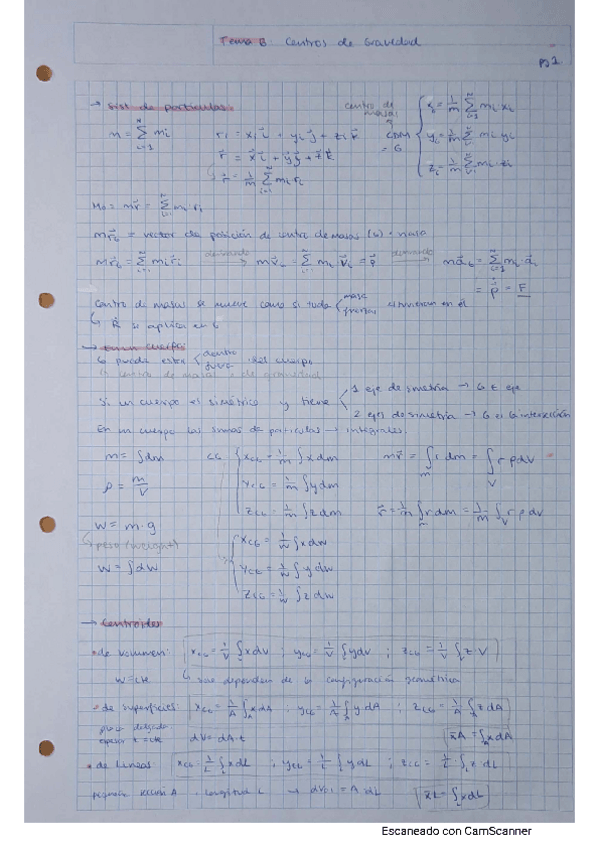 Tema 8: Centros de Gravedad
pg 1
→ Sist de partículas
centro de masas
m = Σ mi
ri = xi i + yj j + zi k
r = x i + y j + z k
r = 1/m Σ mi ri
CDM = G
xi = 1/m Σ mi xi
yi = 1/m Σ mi yi
zi = 1/m Σ mi zi
Mo = mr = Σ mi · ri
mrG = vector de posición de centro de masas (G) · masa
mrG = Σ mi ri derivando → m vG = Σ mi vi = p derivando → m aG = Σ mi · ai
= p = F
Centro de masas se mueve como si toda masa fuerzas estuviesen en él
↳ R se aplica en G
→ En un cuerpo
G puede estar dentro fuera del cuerpo
↳ centro de masas o de gravedad
Si un cuerpo es simétrico y tiene
1 eje de simetría → G ∈ eje
2 ejes de simetría → G es intersección
En un cuerpo las sumas de partículas → integrales.
m = ∫dm
CG
xCG = 1/m ∫x dm
mr = ∫ r dm = ∫ r ρ dV
ρ = m/V
yCG = 1/m ∫y dm
zCG = 1/m ∫z dm
r = 1/m ∫ r dm = 1/m ∫ r ρ dV
W = m · g
↳ peso (weight)
W = ∫dW
xCG = 1/W ∫x dW
yCG = 1/W ∫y dW
zCG = 1/W ∫z dW
→ Centroides
• de volumen: xCG = 1/V ∫x dV ; yCG = 1/V ∫y dV ; zCG = 1/V ∫z · V
W = cte ↳ solo dependen de la configuración geométrica
• de superficies: xCG = 1/A ∫x dA ; yCG = 1/A ∫y dA ; zCG = 1/A ∫z dA
espesor t = cte dV = dA · t
xA = ∫x dA
• de líneas: xCG = 1/L ∫x dL ; yCG = 1/L ∫y dL ; zCG = 1/L · ∫z dL
pequeña sección A · longitud L → dVol = A dL
xL = ∫x dL
Escaneado con CamScanner